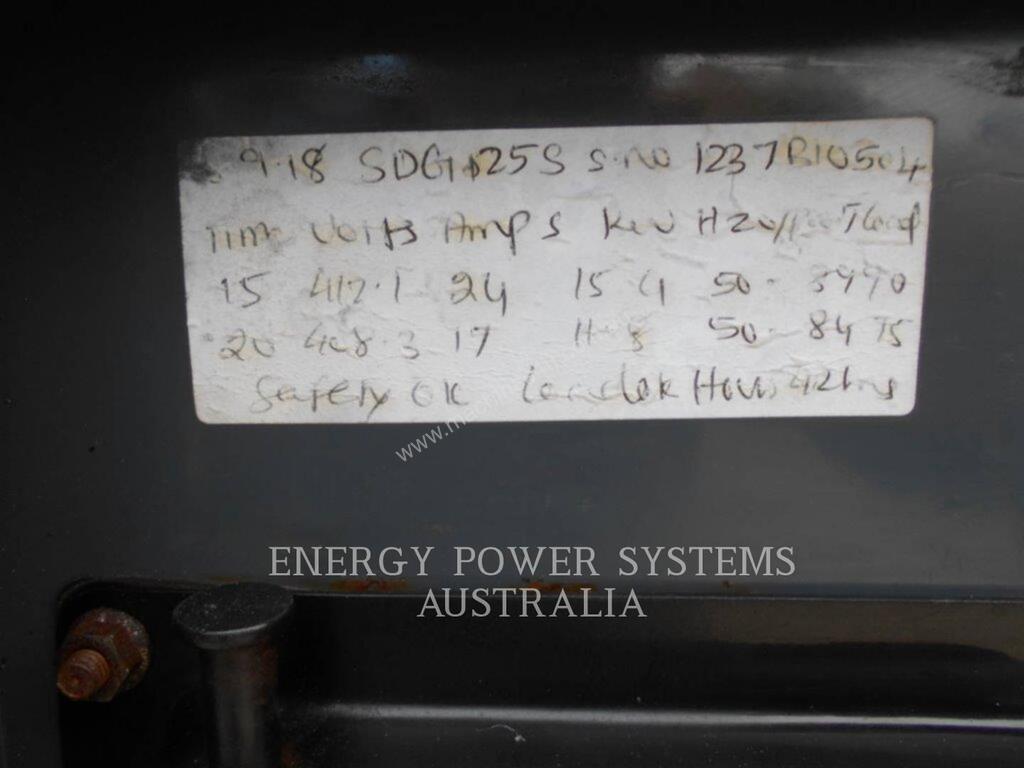 9.18 SDG125S S.NO 1237B10504
Time Volts Amps KW HZ Temp
15 412.1 24 15 4 50.
20 408.3 17 11.8 50. 84 75
Safety OK Hours 42hrs
www.m
ENERGY POWER SYSTEMS
AUSTRALIA